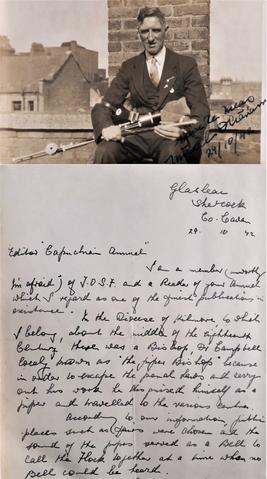 29/10/42
Glasleac
Shercock
Co. Cavan
29. 10 42
Editor "Capuchin Annual"
I am a member (unworthy
I'm afraid") of T.O.S.F. and a Reader of your Annual
which I regard as one of the finest publications in
existence. In the Diocese of Kilmore to which
I belong, about the middle of the Eighteenth
Century there was a Bishop, Dr Campbell
locally known as "the pipers Bishop" because
in order to escape the penal laws and carry
out his work he disguised himself as a
piper and travelled to the various centres
According to our information public
places such as fairs were chosen and the
sound of the pipes served as a Bell to
call the Flock together at a time when no
Bell could be heard.